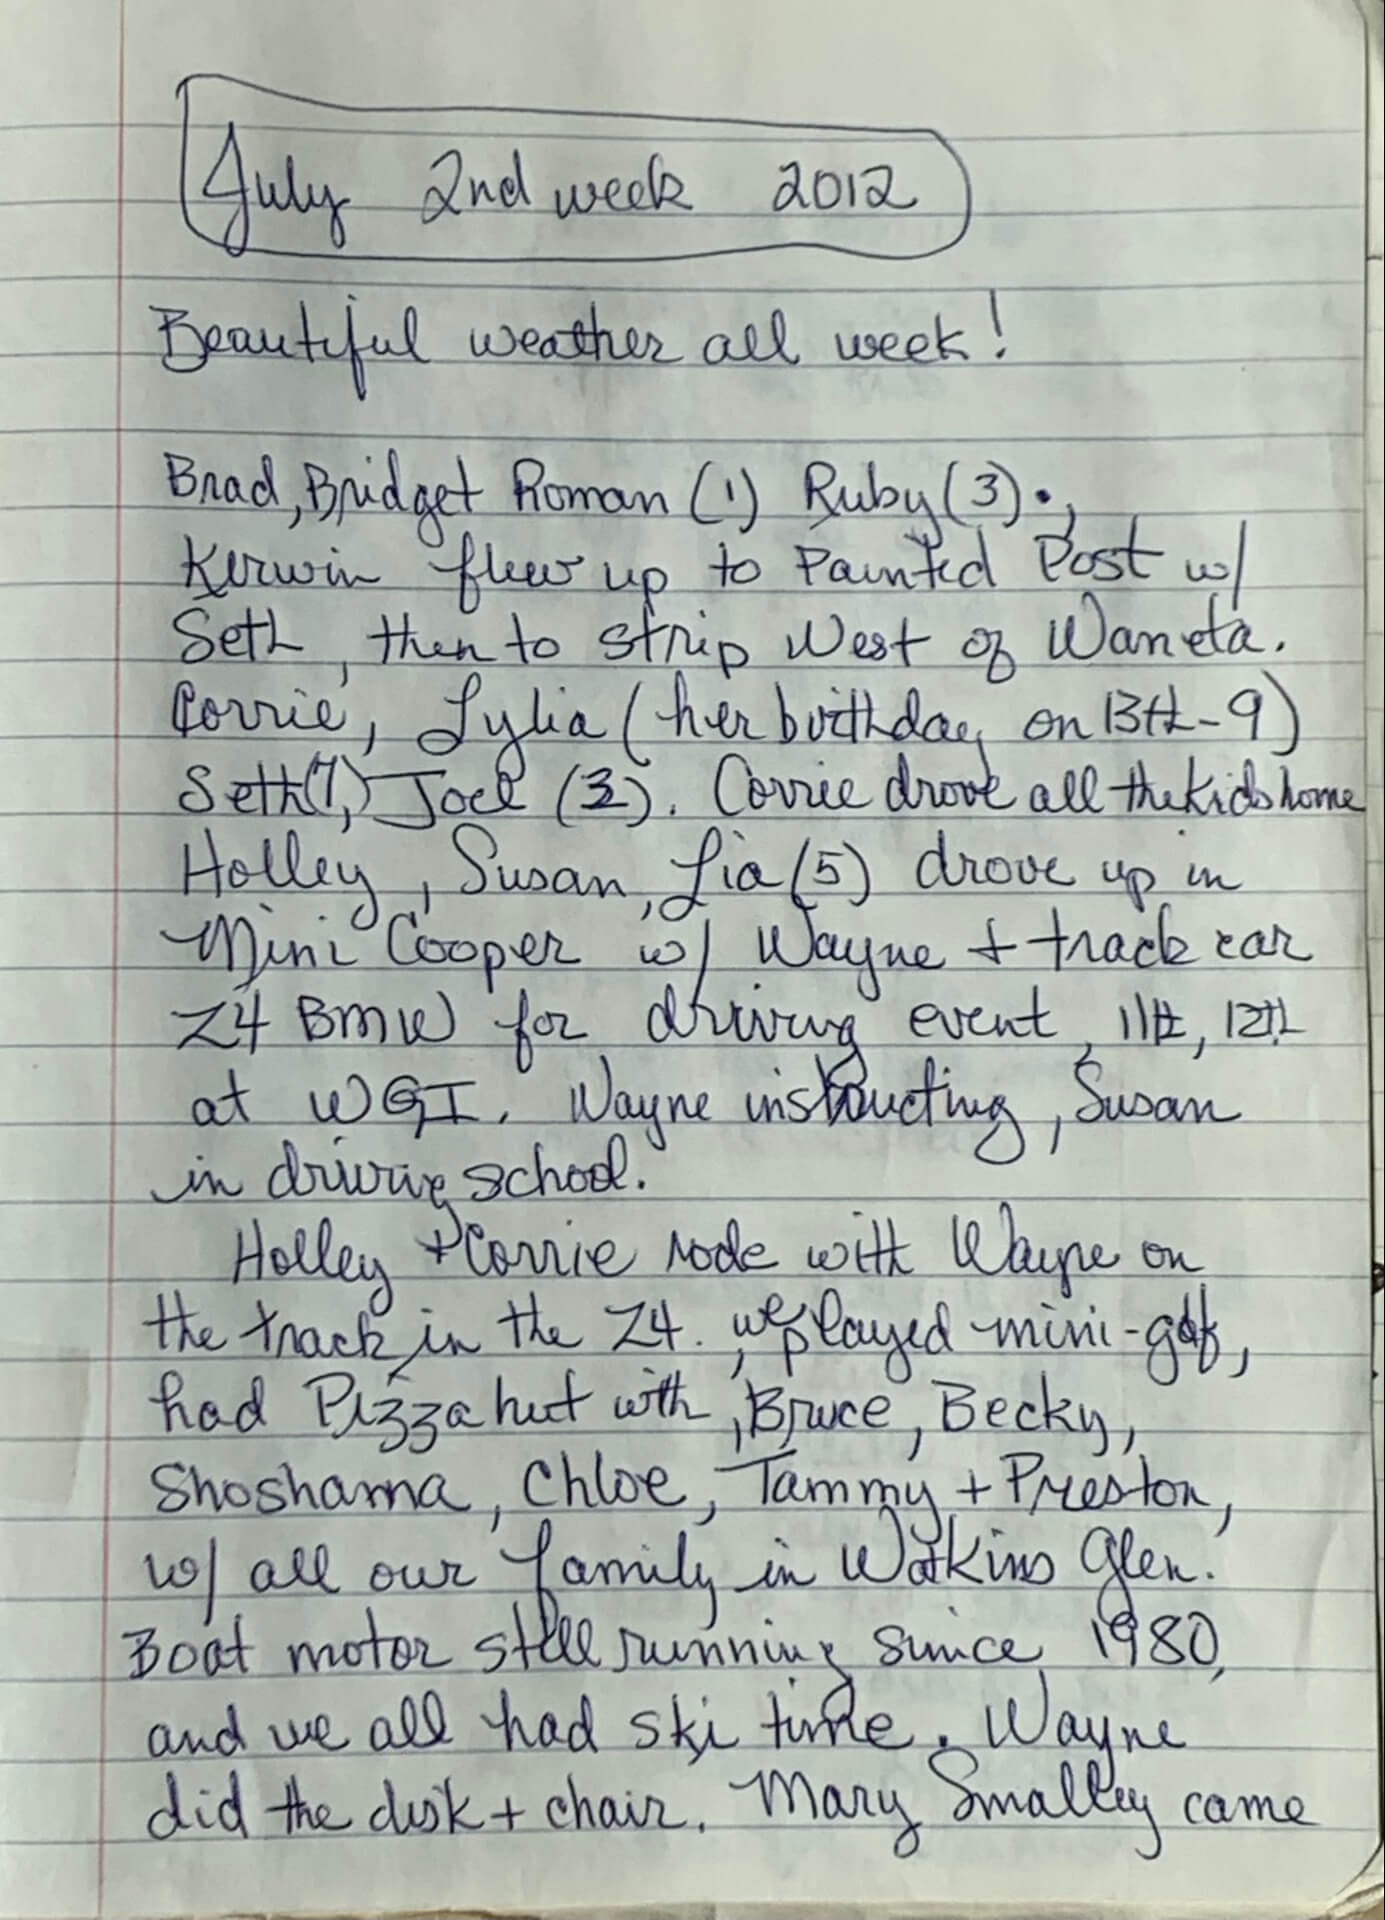 July 2nd week 2012
Beautiful weather all week!
Brad, Bridget Roman (1) Ruby (3).,
Kerwin flew up to Painted Post w/
Seth, then to strip West of Waneta.
Corrie, Lylia (her birthday on 13th - 9)
Seth(7,) Joel (3). Corrie drove all the kids home
Holley, Susan, Lia (5) drove up in
Mini Cooper w/ Wayne + track car
Z4 BMW for driving event, 11th, 12th
at WGI. Wayne instructing, Susan
in driving school.
Holley + Corrie rode with Wayne on
the track in the Z4. we, played mini-golf,
had Pizza hut with, Bruce, Becky,
Shoshanna, Chloe, Tammy + Preston,
w/ all our family in Watkins Glen.
Boat motor still running since 1980,
and we all had ski time. Wayne
did the disk + chair. Mary Smalley came